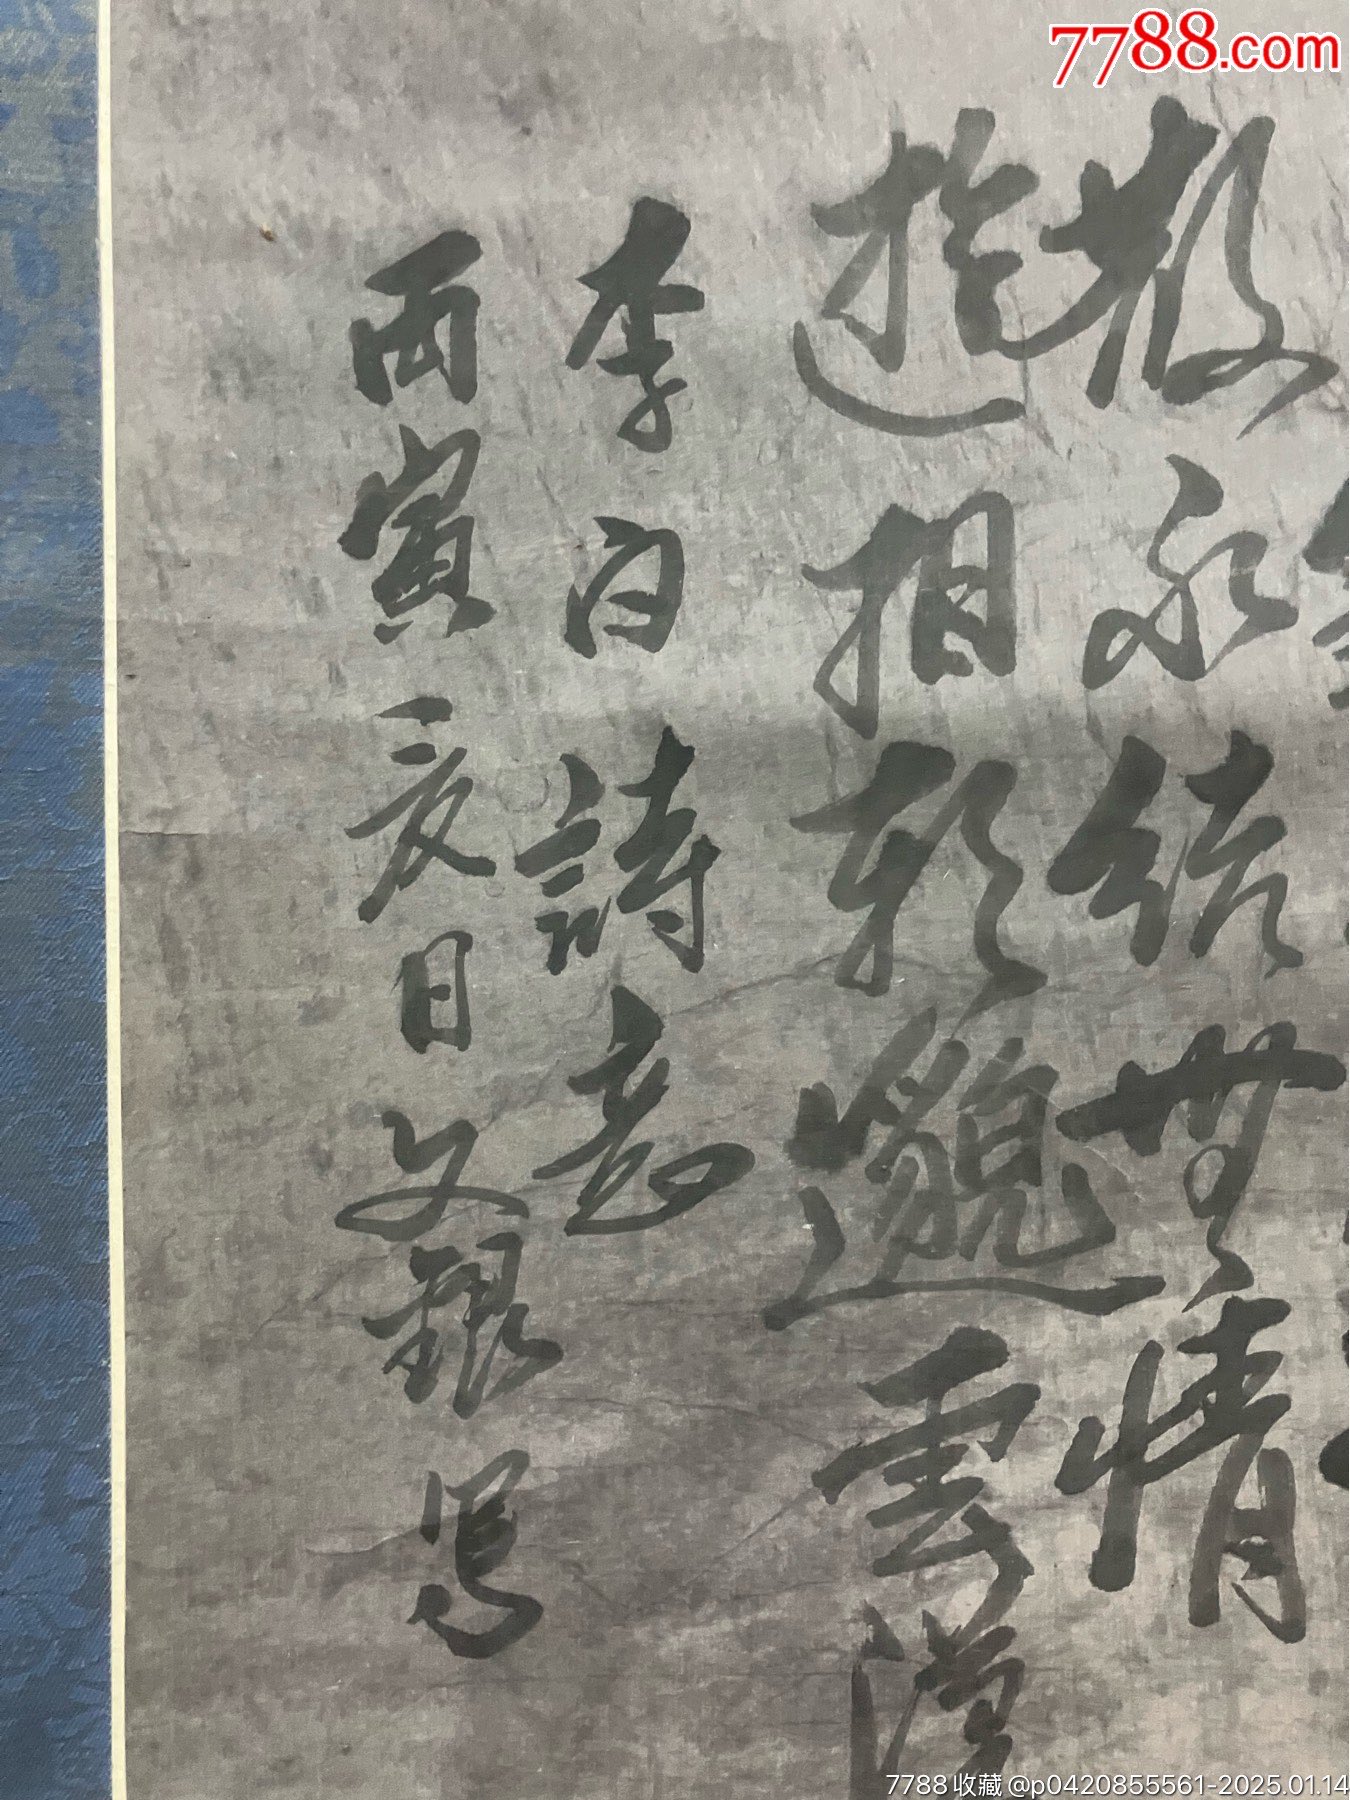 7788.com
散永結無情
遊相期邈雲漢
李白詩意
丙寅夏日文銀写
7788收藏@p0420855561-2025.01.14